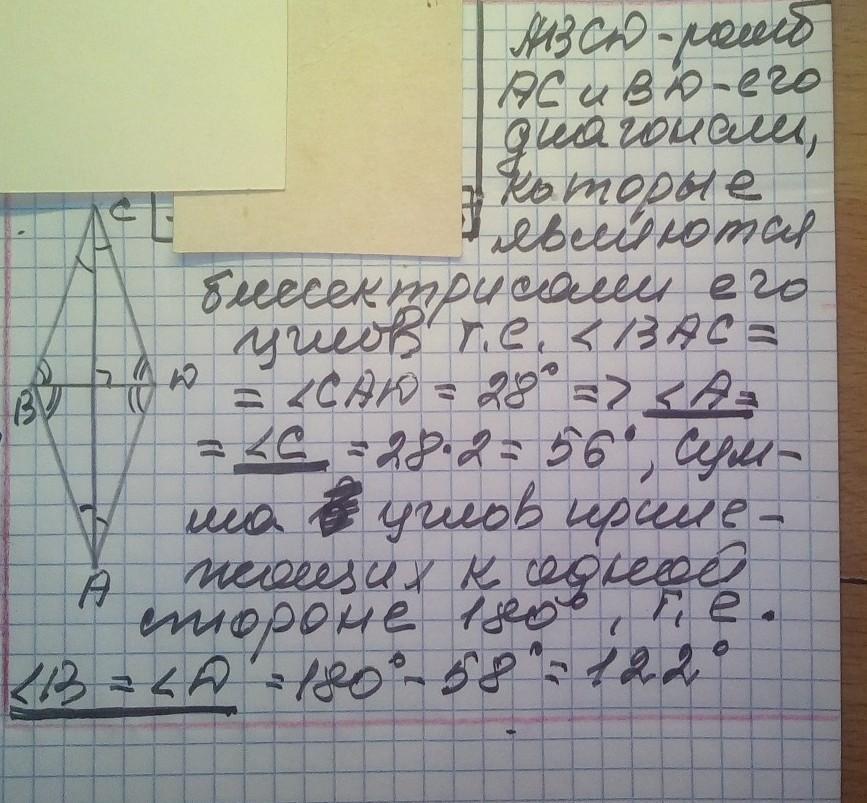 АВСД - ромб
АС и ВД - его
диагонали,
которые
являются
биссектрисами его
углов т.е. <ВАС =
= <САД = 28° => <А =
= <С = 28·2 = 56°, сум-
ма углов приле-
жащих к одной
стороне 180°, т.е.
<В = <Д = 180° - 58° = 122°
С
В
Д
А